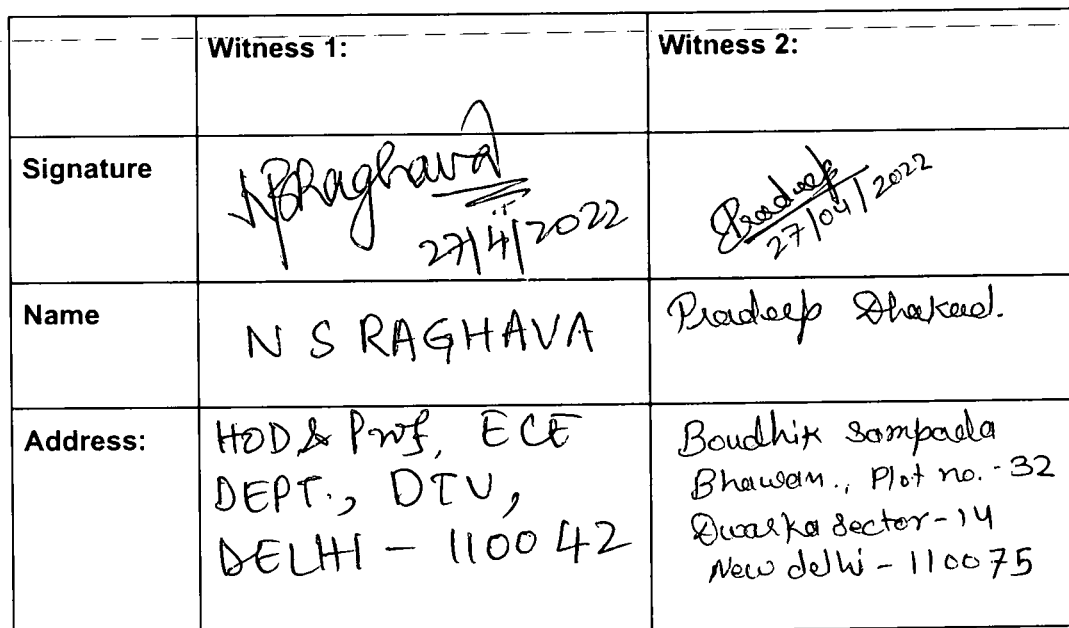 Witness 1:
Witness 2:
Signature
NSRaghava
27/4/2022
Pradeep
27/04/2022
Name
N S RAGHAVA
Pradeep Dhakad.
Address:
HOD & Prof, ECE
DEPT., DTU,
DELHI - 110042
Boudhik Sampada
Bhawan., Plot no.-32
Dwarka Sector-14
New delhi - 110075